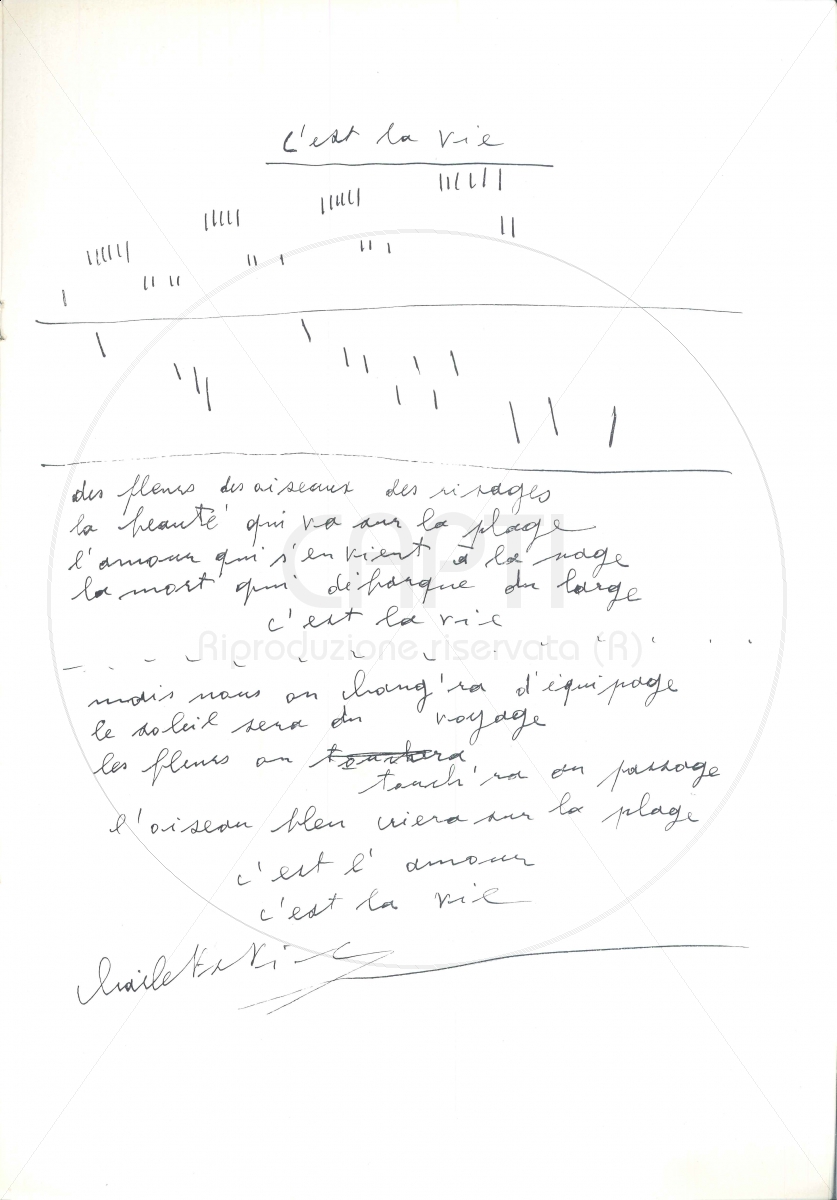 c'est la vie
des fleurs des oiseaux des visages
la beauté qui va sur la plage
l'amour qui s'en vient à la nage
la mort qui débarque du large
c'est la vie
CAPTI
Riproduzione riservata (R)
mais nous on chang'ra d'équipage
le soleil sera du voyage
les fleurs on touchera
touch'ra au passage
l'oiseau bleu criera sur la plage
c'est l'amour
c'est la vie